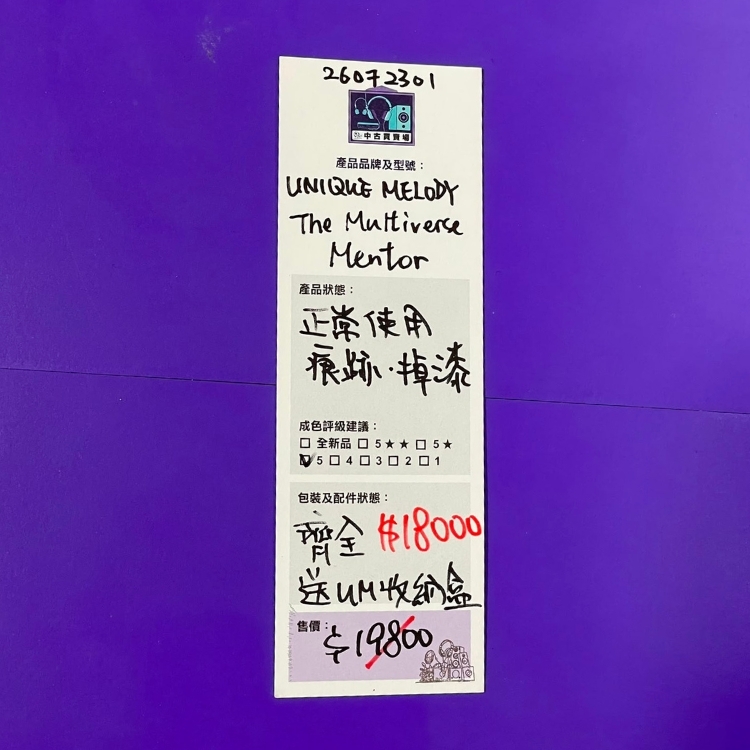 26072301
中古買賣場
產品品牌及型號：
UNIQUE MELODY
The Multiverse
Mentor
產品狀態：
正常使用
痕跡·掉漆
成色評級建議：
□ 全新品 □ 5★★ □ 5★
☑ 5 □ 4 □ 3 □ 2 □ 1
包裝及配件狀態：
齊全 $18000
送UM收納盒
售價：$19800